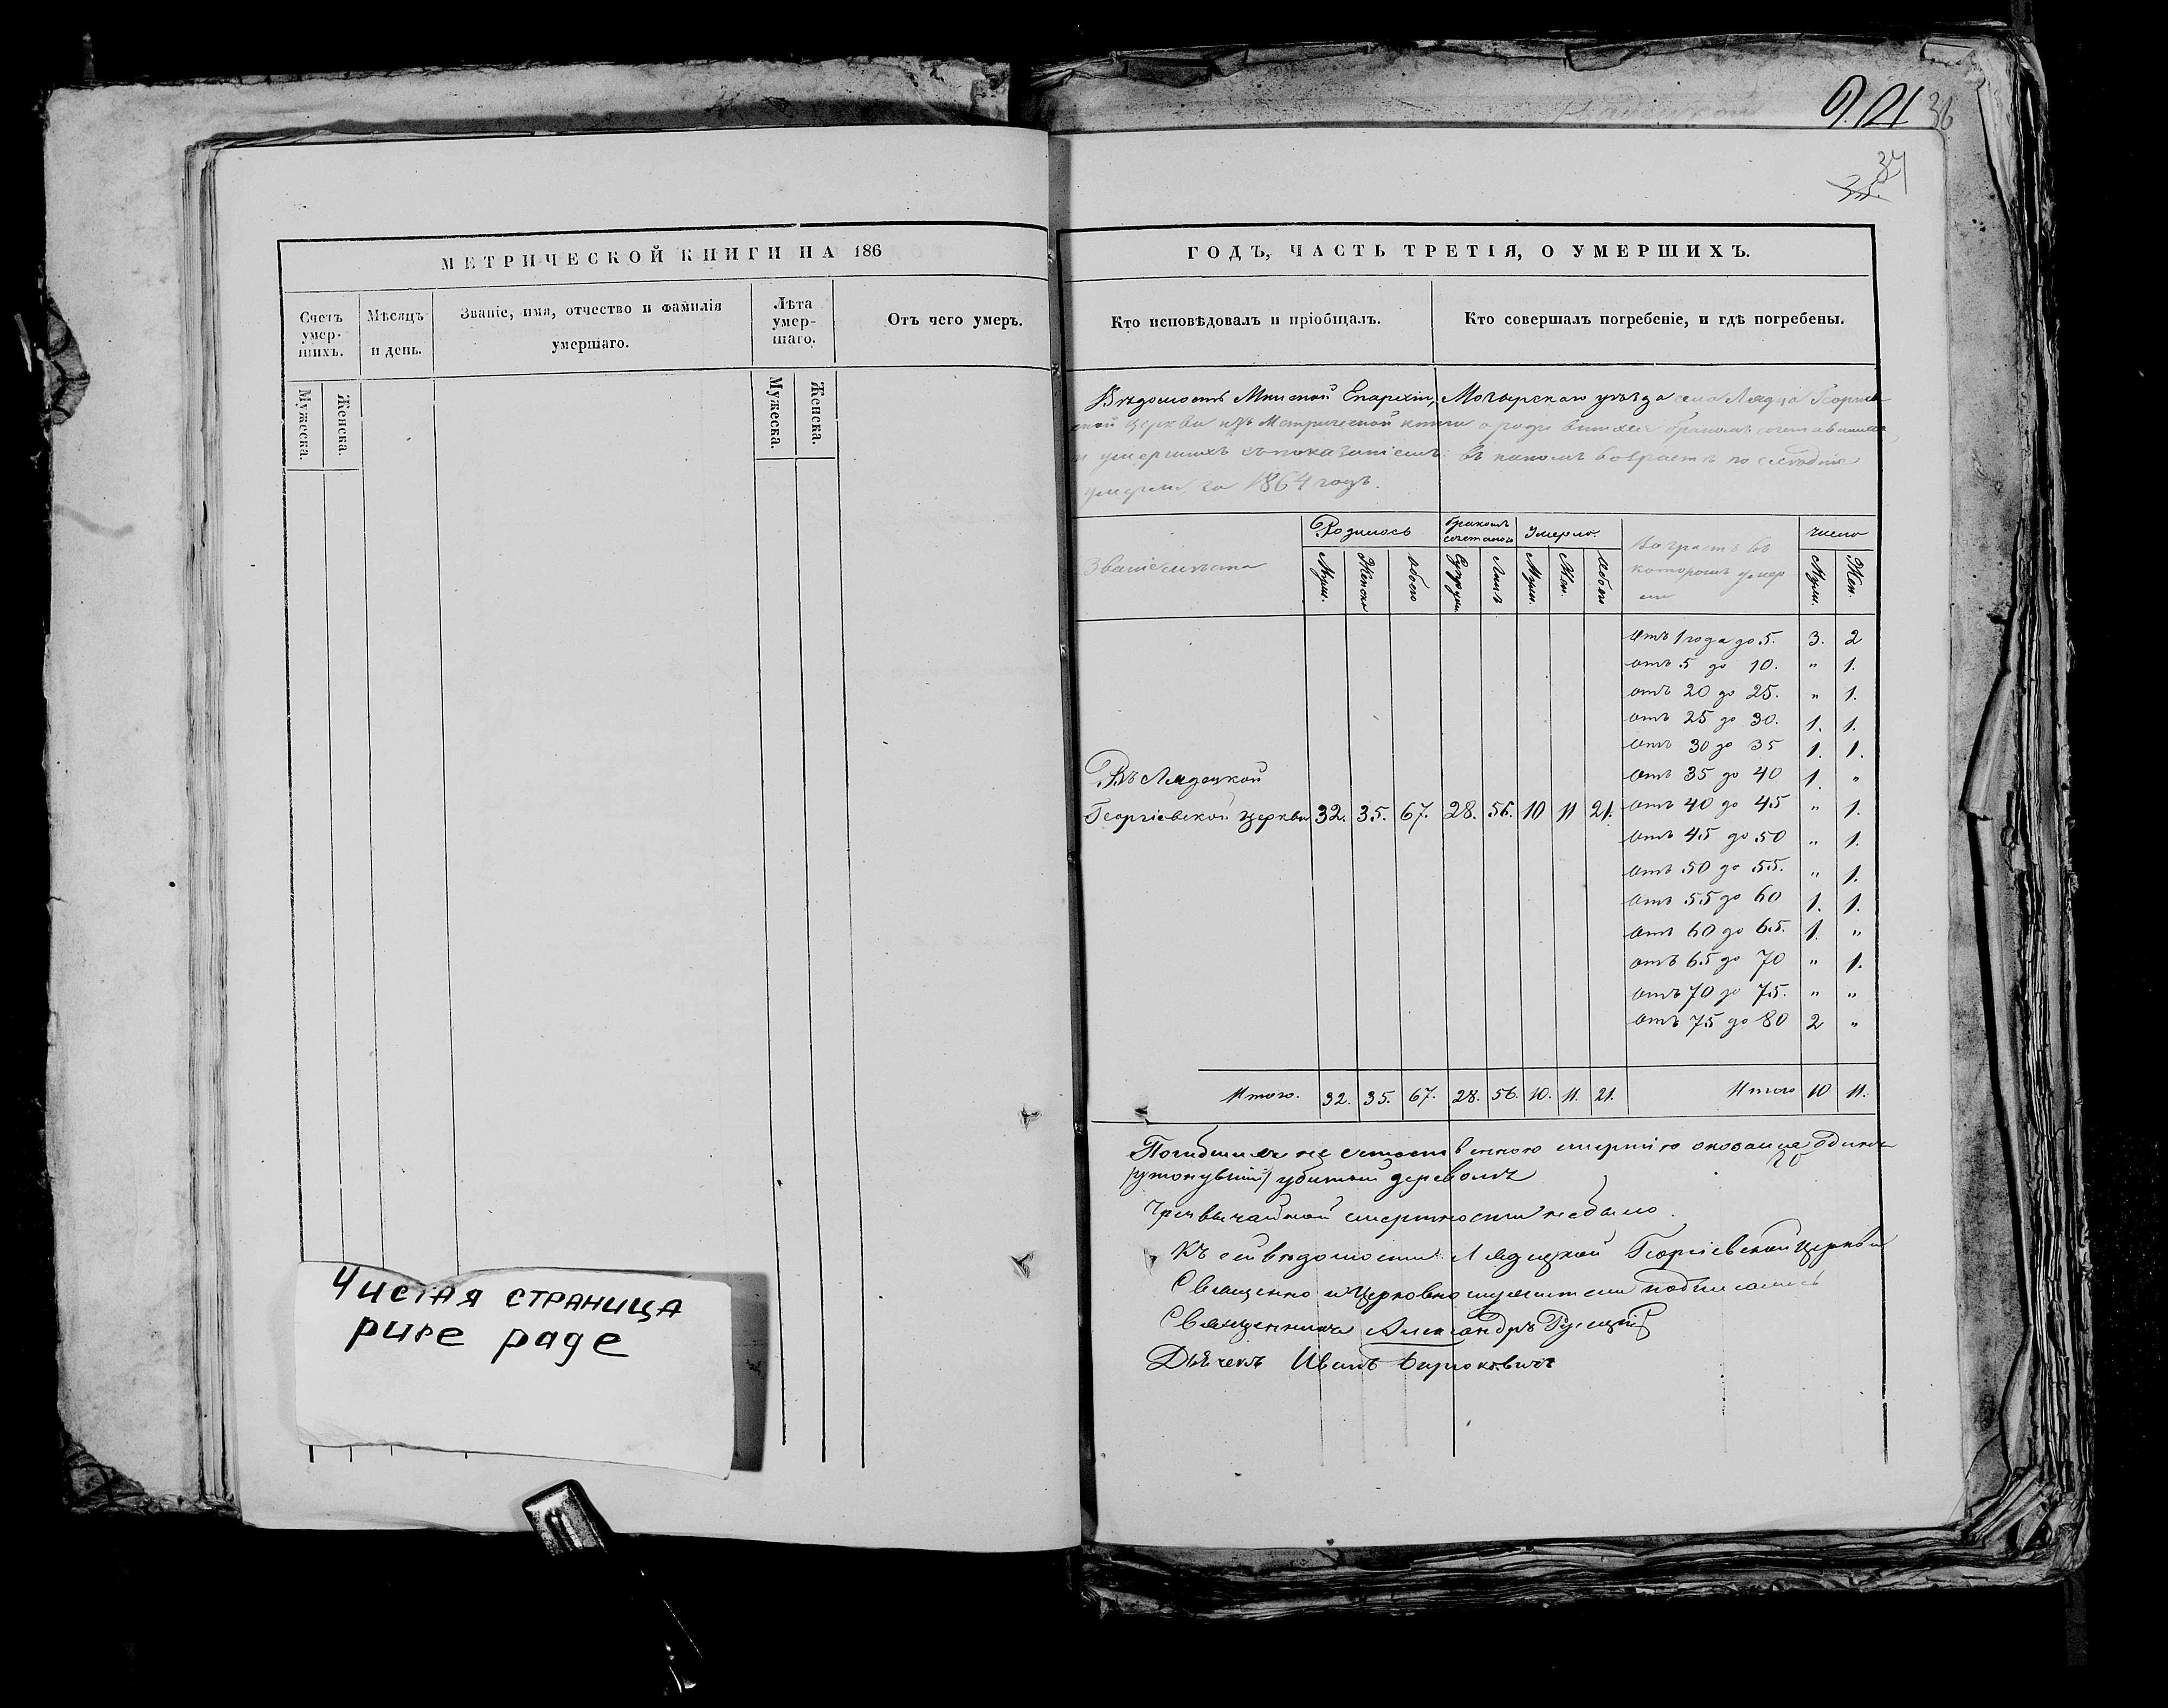 921 36
34
МЕТРИЧЕСКОЙ КНИГИ НА 186
Счетъ умер-шихъ.
Мужеска.
Женска.
Мѣсяцъ и день.
Званіе, имя, отчество и фамилія
умершаго.
Лѣта умер-шаго.
Мужеска.
Женска.
Отъ чего умеръ.
Чистая страница
pure page
ГОДЪ, ЧАСТЬ ТРЕТІЯ, О УМЕРШИХЪ.
Кто исповѣдовалъ и пріобщалъ.
Кто совершалъ погребеніе, и гдѣ погребены.
Вѣдомость Минской Епархіи, Мозырскаго уѣзда села Лядца Георгіев
ской Церкви изъ Метрической книги о родившихся бракомъ сочетавшихся
и умершихъ съ показаніемъ въ какомъ возрастѣ
умерли за 1864 годъ.
Званіе мѣста
Родилось
Муж.
Женск
Обоего
бракомъ сочеталось
Супруж.
Лицъ
Умерло.
Муж.
Жен.
Обоего
Возрастъ въ
которомъ умер
ли
число
Муж.
Жен.
отъ 1 года до 5. 3. 2
отъ 5 до 10. " 1.
отъ 20 до 25. " 1.
отъ 25 до 30. 1. 1.
отъ 30 до 35 1. 1.
отъ 35 до 40 1. "
Въ Лядецкой
Георгіевской Церкви 32. 35. 67. 28. 56. 10 11 21. отъ 40 до 45 " 1.
отъ 45 до 50 " 1.
отъ 50 до 55. " 1.
отъ 55 до 60 1. 1.
отъ 60 до 65. 1. "
отъ 65 до 70 " 1.
отъ 70 до 75. " "
отъ 75 до 80 2 "
Итого. 32. 35. 67. 28. 56. 10. 11. 21. Итого 10 11.
Погибшихъ не естественною смертію одинъ
/утонувшій/ убитый деревомъ
Чрезвычайной смертности небыло.
Къ сей вѣдомости Лядецкой Георгіевской Церкви
Священно и Церковнослужители подписались
Священникъ Александръ
Дьячекъ Иванъ Бирюковичъ